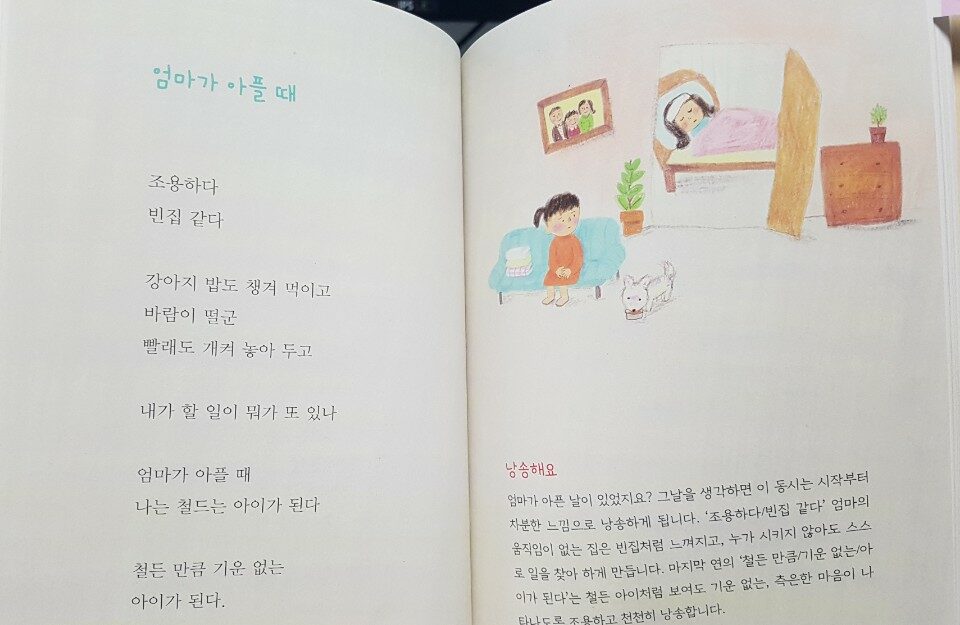 엄마가 아플 때
조용하다
빈집 같다
강아지 밥도 챙겨 먹이고
바람이 떨군
빨래도 개켜 놓아 두고
내가 할 일이 뭐가 또 있나
엄마가 아플 때
나는 철드는 아이가 된다
철든 만큼 기운 없는
아이가 된다.
낭송해요
엄마가 아픈 날이 있었지요? 그날을 생각하면 이 동시는 시작부터
차분한 느낌으로 낭송하게 됩니다. ‘조용하다/빈집 같다’ 엄마의
움직임이 없는 집은 빈집처럼 느껴지고, 누가 시키지 않아도 스스
로 일을 찾아 하게 만듭니다. 마지막 연의 ‘철든 만큼/기운 없는/아
이가 된다’는 철든 아이처럼 보여도 기운 없는, 측은한 마음이 나
타나도록 조용하고 천천히 낭송합니다.